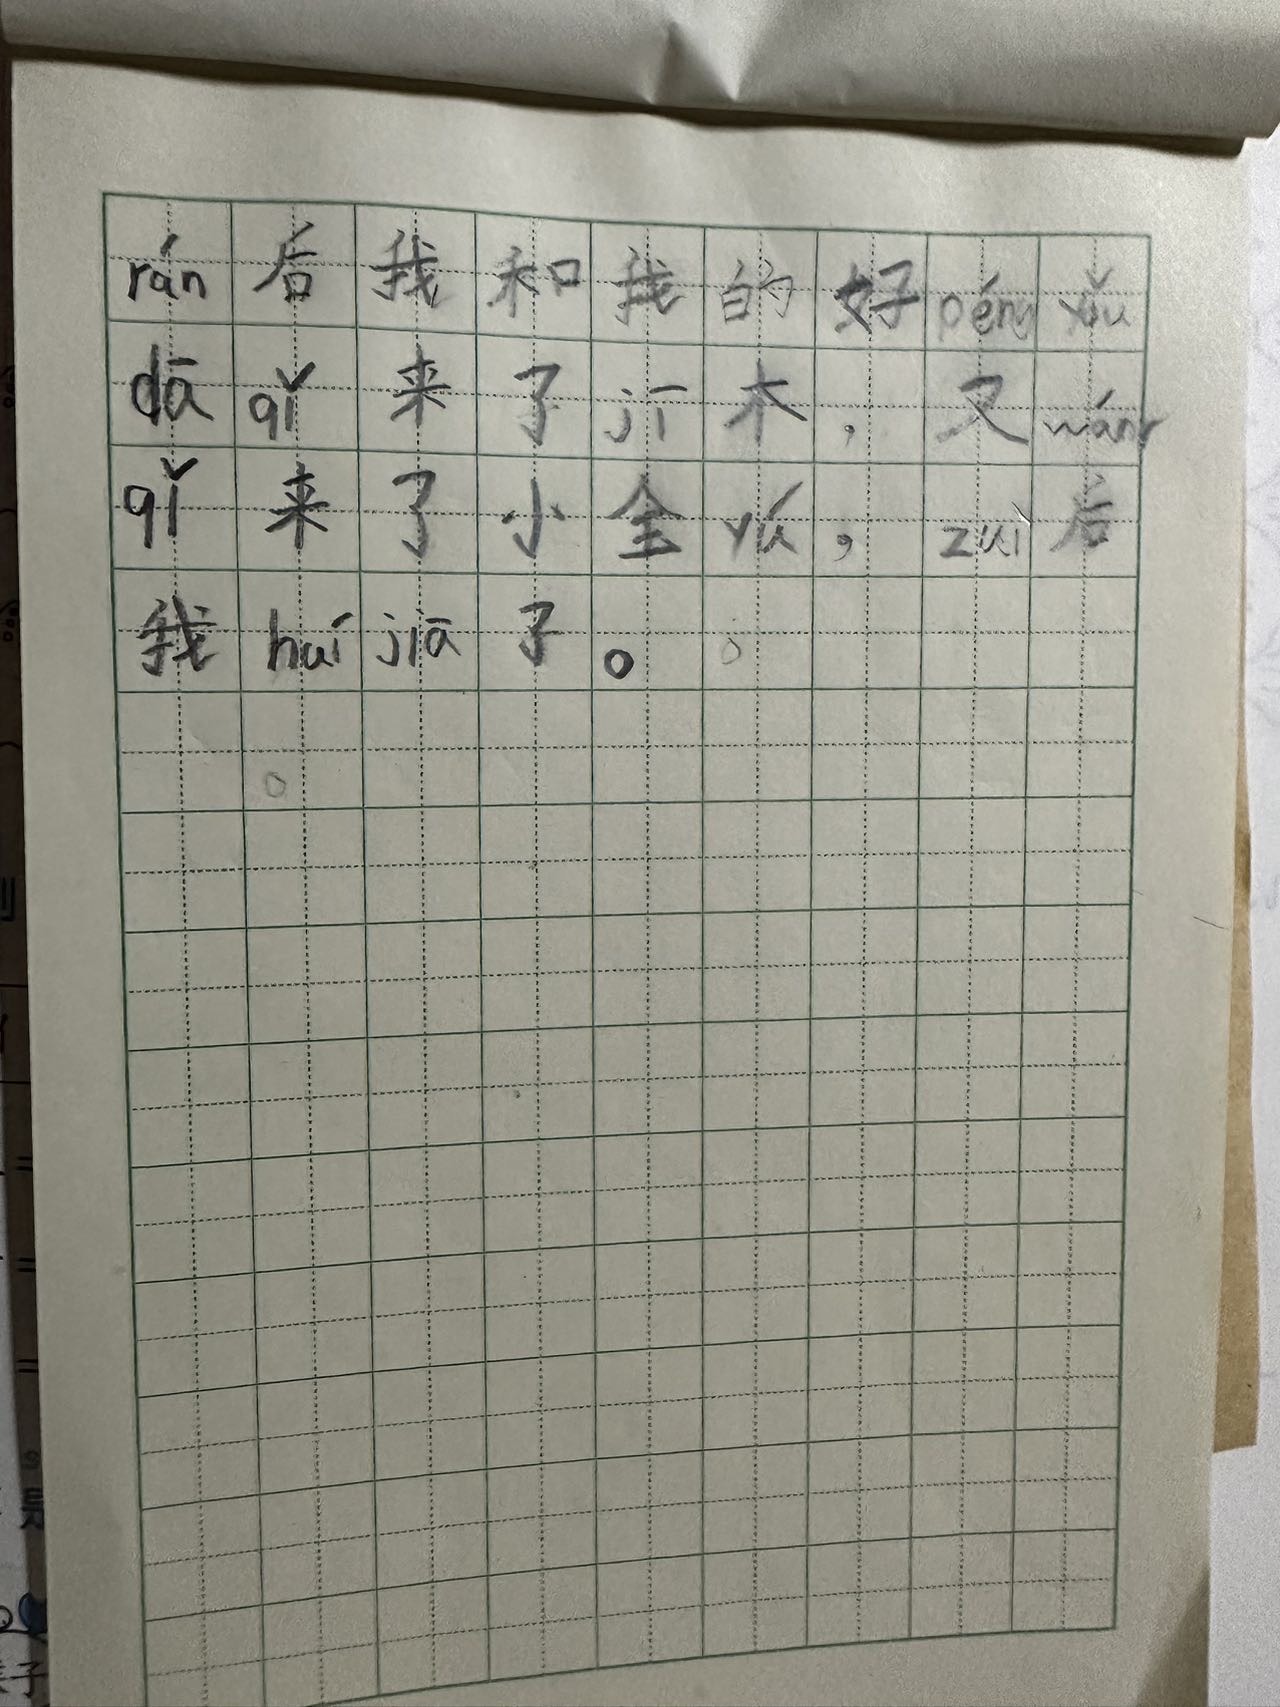 rán后我和我的好péng yǒu
dā qǐ来了jī木，又wánr
qǐ来了小金yú，zuì后
我huí jiā了。